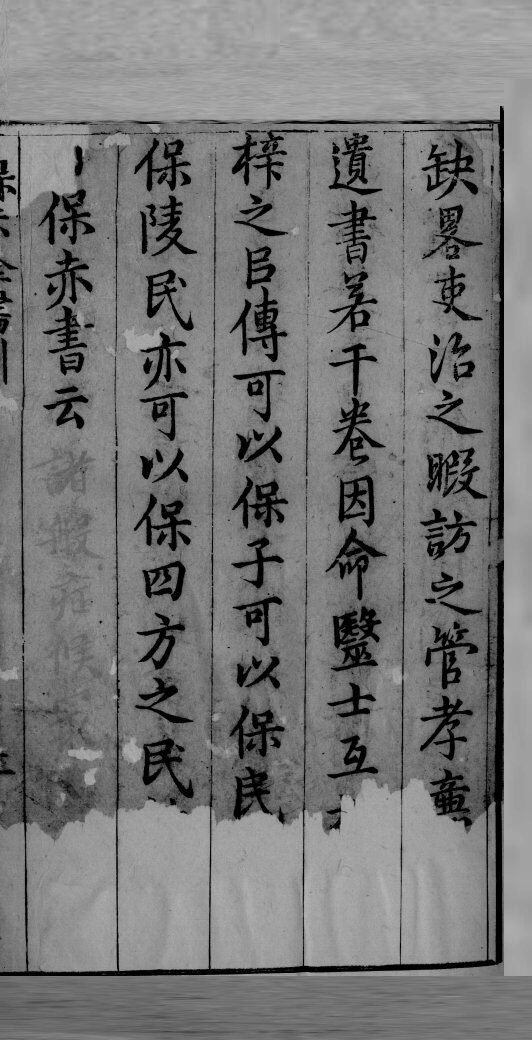 缺畧吏治之暇訪之管孝
遺書若干卷因命醫士互
梓之臣傳可以保子可以保民
保陵民亦可以保四方之民
保赤書云